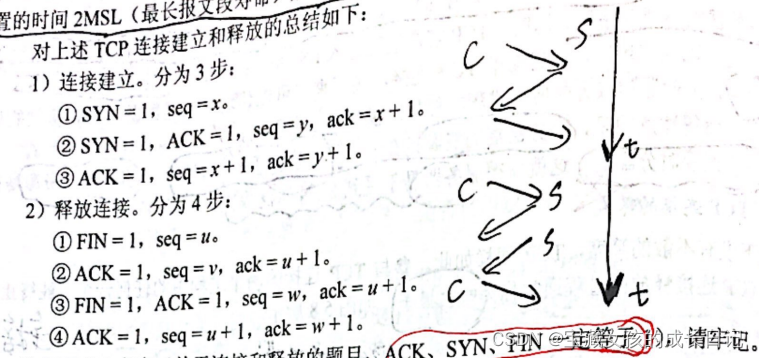 置的时间 2MSL（最长报文段寿命
对上述 TCP 连接建立和释放的总结如下：
1）连接建立。分为 3 步：
① SYN = 1，seq = x。
② SYN = 1，ACK = 1，seq = y，ack = x + 1。
③ ACK = 1，seq = x + 1，ack = y + 1。
2）释放连接。分为 4 步：
① FIN = 1，seq = u。
② ACK = 1，seq = v，ack = u + 1。
③ FIN = 1，ACK = 1，seq = w，ack = u + 1。
④ ACK = 1，seq = u + 1，ack = w + 1。
连接和释放的题目，ACK、SYN、FIN 一定等于 1，请牢记。
C S
t
C S
S
C
t
CSDN